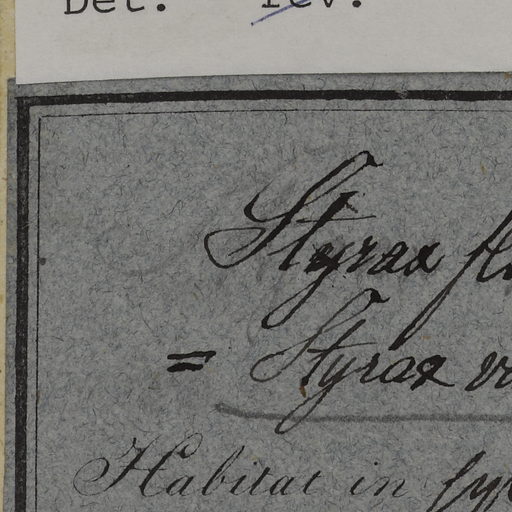 Det. rev.
Styrax fl
= Styrax v
Habitat in